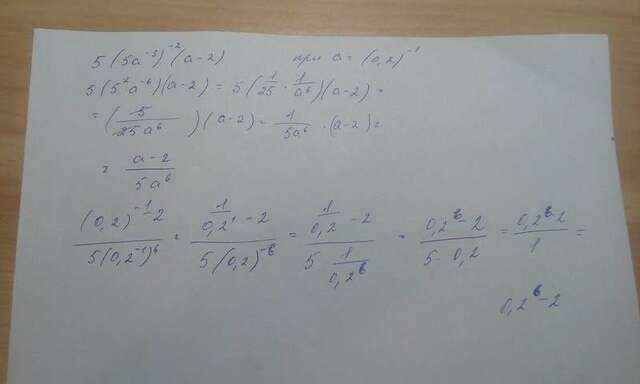 5(5a⁻³)⁻²(a-2) при a = (0,2)⁻¹
5(5²a⁻⁶)(a-2) = 5(1/25 · 1/a⁶)(a-2) =
= (5/25a⁶)(a-2) = 1/5a⁶ · (a-2) =
= a-2/5a⁶
(0,2)⁻¹-2/5(0,2⁻¹)⁶ = 1/0,2¹ - 2/5(0,2)⁻⁶ = 1/0,2 - 2/5 1/0,2⁶ = 0,2⁶-2/5·0,2 = 0,2⁶-2/1 =
0,2⁶-2